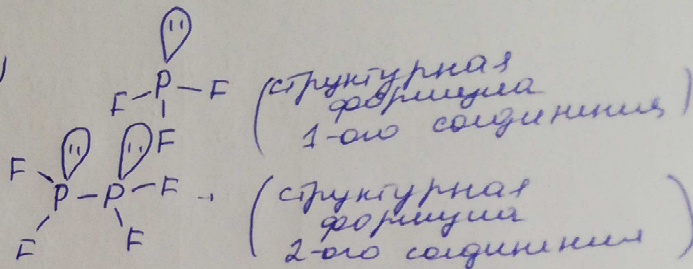 )
P
F
F
F
(структурная
формула
1-ого соединения)
F
P
P
F
F
F
(структурная
формула
2-ого соединения)